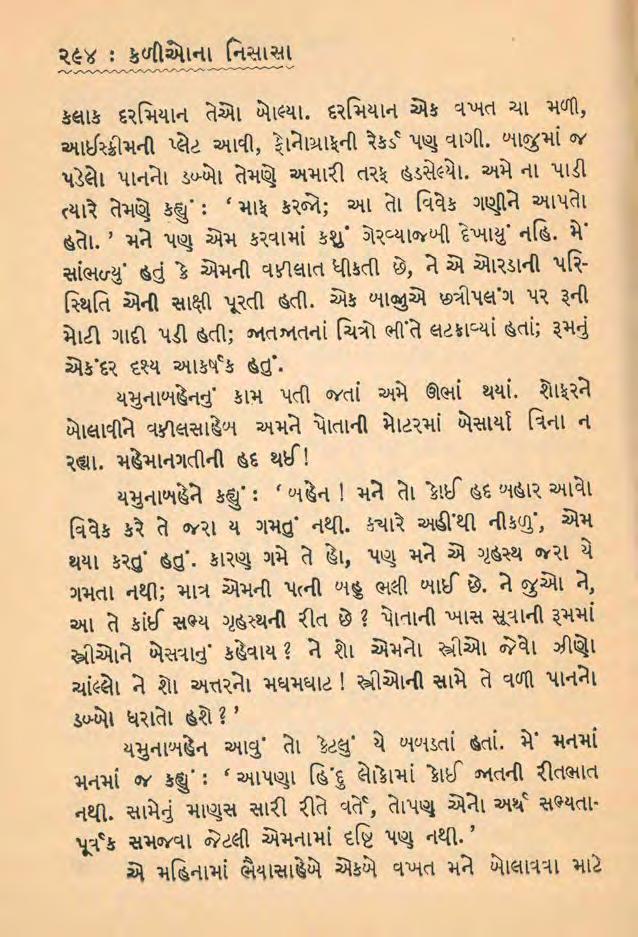 ૨૯૪ : કળીઓના નિસાસા
કલાક દરમિયાન તેઓ બોલ્યા. દરમિયાન એક વખત ચા મળી,
આઈસ્ક્રીમની પ્લેટ આવી, ફોનોગ્રાફની રેકર્ડ પણ વાગી. બાજુમાં જ
પડેલો પાનનો ડબ્બો તેમણે અમારી તરફ હડસેલ્યો. અમે ના પાડી
ત્યારે તેમણે કહ્યું : ‘ માફ કરજો; આ તો વિવેક ગણીને આપતો
હતો. ’ મને પણ એમ કરવામાં કશું ગેરવ્યાજબી દેખાયું નહિ. મેં
સાંભળ્યું હતું કે એમની વકીલાત ધીકતી છે, ને એ ઓરડાની પરિ-
સ્થિતિ એની સાક્ષી પૂરતી હતી. એક બાજુએ છત્રીપલંગ પર રૂની
મોટી ગાદી પડી હતી; જાતજાતનાં ચિત્રો ભીંતે લટકાવ્યાં હતાં; રૂમનું
એકંદર દૃશ્ય આકર્ષક હતું.
યમુનાબહેનનું કામ પતી જતાં અમે ઊભાં થયાં. શોફરને
બોલાવીને વકીલસાહેબ અમને પોતાની મોટરમાં બેસાર્યા વિના ન
રહ્યા. મહેમાનગતીની હદ થઈ !
યમુનાબહેને કહ્યું : ‘ બહેન ! મને તો કોઈ હદ બહાર આવો
વિવેક કરે તે જરા ય ગમતું નથી. ક્યારે અહીંથી નીકળું, એમ
થયા કરતું હતું. કારણ ગમે તે હો, પણ મને એ ગૃહસ્થ જરા યે
ગમતા નથી; માત્ર એમની પત્ની બહુ ભલી બાઈ છે. ને જુઓ ને,
આ તે કાંઈ સભ્ય ગૃહસ્થની રીત છે ? પોતાની ખાસ સૂવાની રૂમમાં
સ્ત્રીઓને બેસવાનું કહેવાય ? ને શો એમનો સ્ત્રીઓ જેવો ઝીણો
ચાંલ્લો ને શો અત્તરનો મઘમઘાટ ! સ્ત્રીઓની સામે તે વળી પાનનો
ડબ્બો ધરાતો હશે ? ’
યમુનાબહેન આવું તો કેટલું યે બબડતાં હતાં. મેં મનમાં
મનમાં જ કહ્યું : ‘ આપણા હિંદુ લોકોમાં કોઈ જાતની રીતભાત
નથી. સામેનું માણસ સારી રીતે વર્તે, તોપણ એનો અર્થ સભ્યતા-
પૂર્વક સમજવા જેટલી એમનામાં દૃષ્ટિ પણ નથી. ’
એ મહિનામાં ભૈયાસાહેબે એકબે વખત મને બોલાવવા માટે